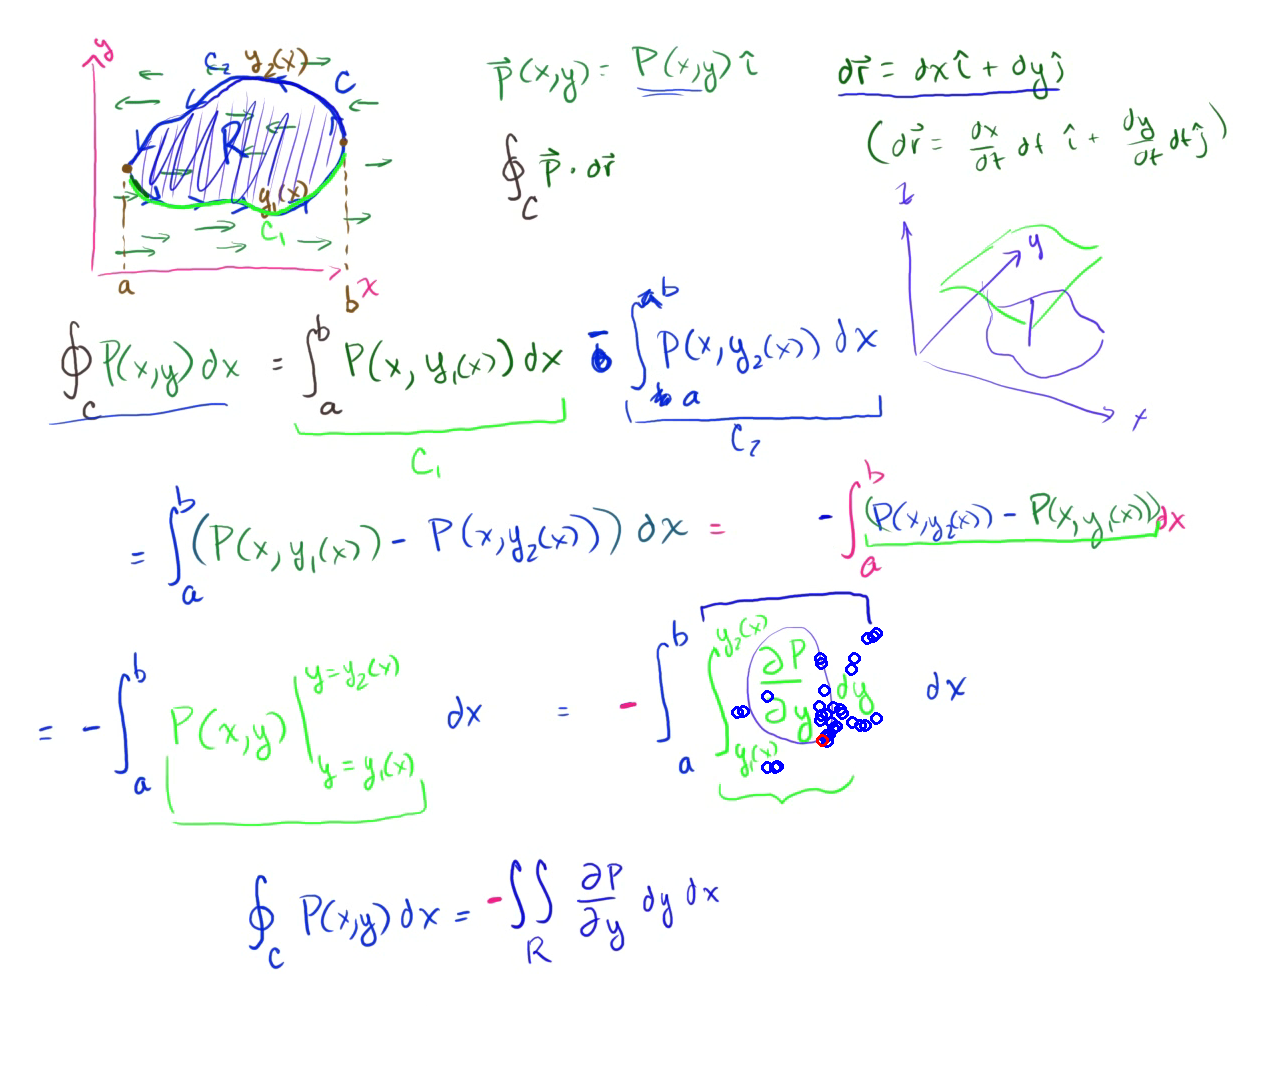 y
C₂ y₂(x)
C
R
y₁(x)
C₁
a
b x
P⃗(x,y) = P(x,y) î
∮_C P⃗ · dr⃗
dr⃗ = dx î + dy ĵ
(dr⃗ = dx/dt dt î + dy/dt dt ĵ)
z
y
x
∮_C P(x,y) dx = ∫_a^b P(x, y₁(x)) dx - ∫_a^b P(x, y₂(x)) dx
C₁
C₂
= ∫_a^b (P(x, y₁(x)) - P(x, y₂(x))) dx = - ∫_a^b (P(x, y₂(x)) - P(x, y₁(x))) dx
= - ∫_a^b P(x,y) |_{y = y₁(x)}^{y = y₂(x)} dx = - ∫_a^b ∫_{y₁(x)}^{y₂(x)} ∂P/∂y dy dx
∮_C P(x,y) dx = - ∬_R ∂P/∂y dy dx